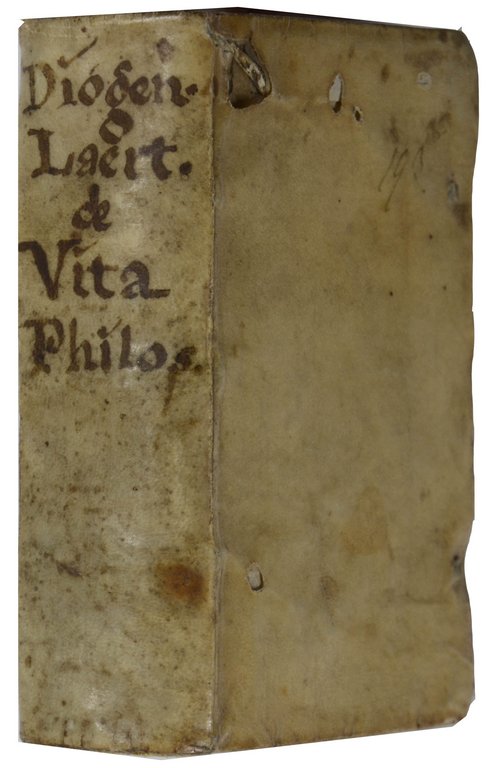 Diogen.
Laert.
de
Vita
Philos.